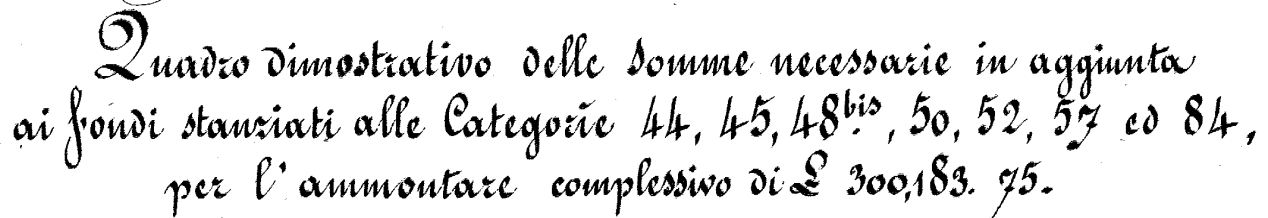 Quadro dimostrativo delle somme necessarie in aggiunta
ai fondi stanziati alle Categorie 44, 45, 48bis, 50, 52, 57 ed 84,
per l'ammontare complessivo di £ 300,183. 75.